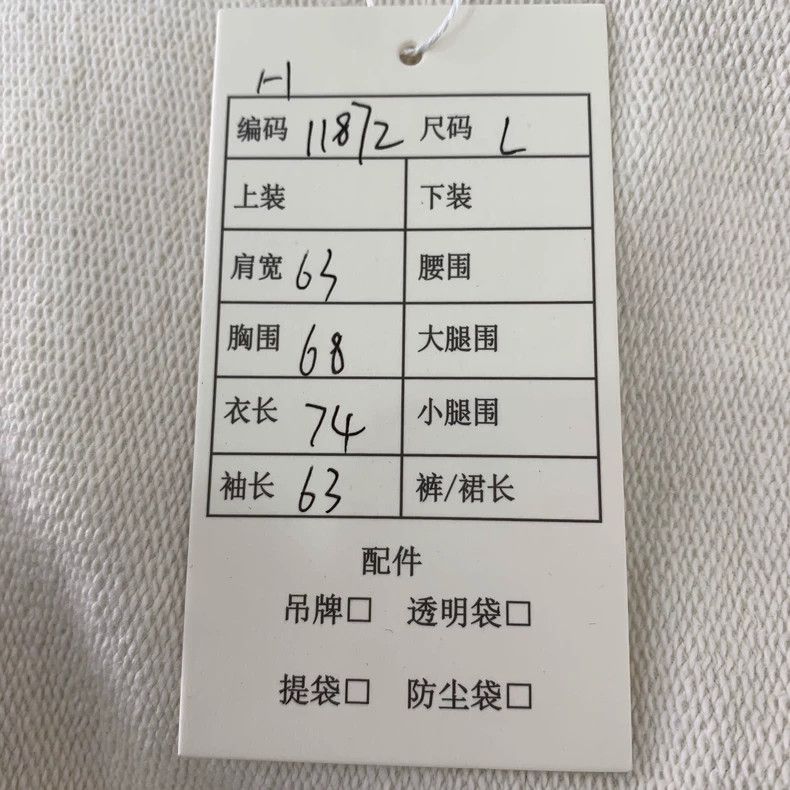 H
编码 11872 尺码 L
上装 下装
肩宽 63 腰围
胸围 68 大腿围
衣长 74 小腿围
袖长 63 裤/裙长
配件
吊牌□ 透明袋□
提袋□ 防尘袋□